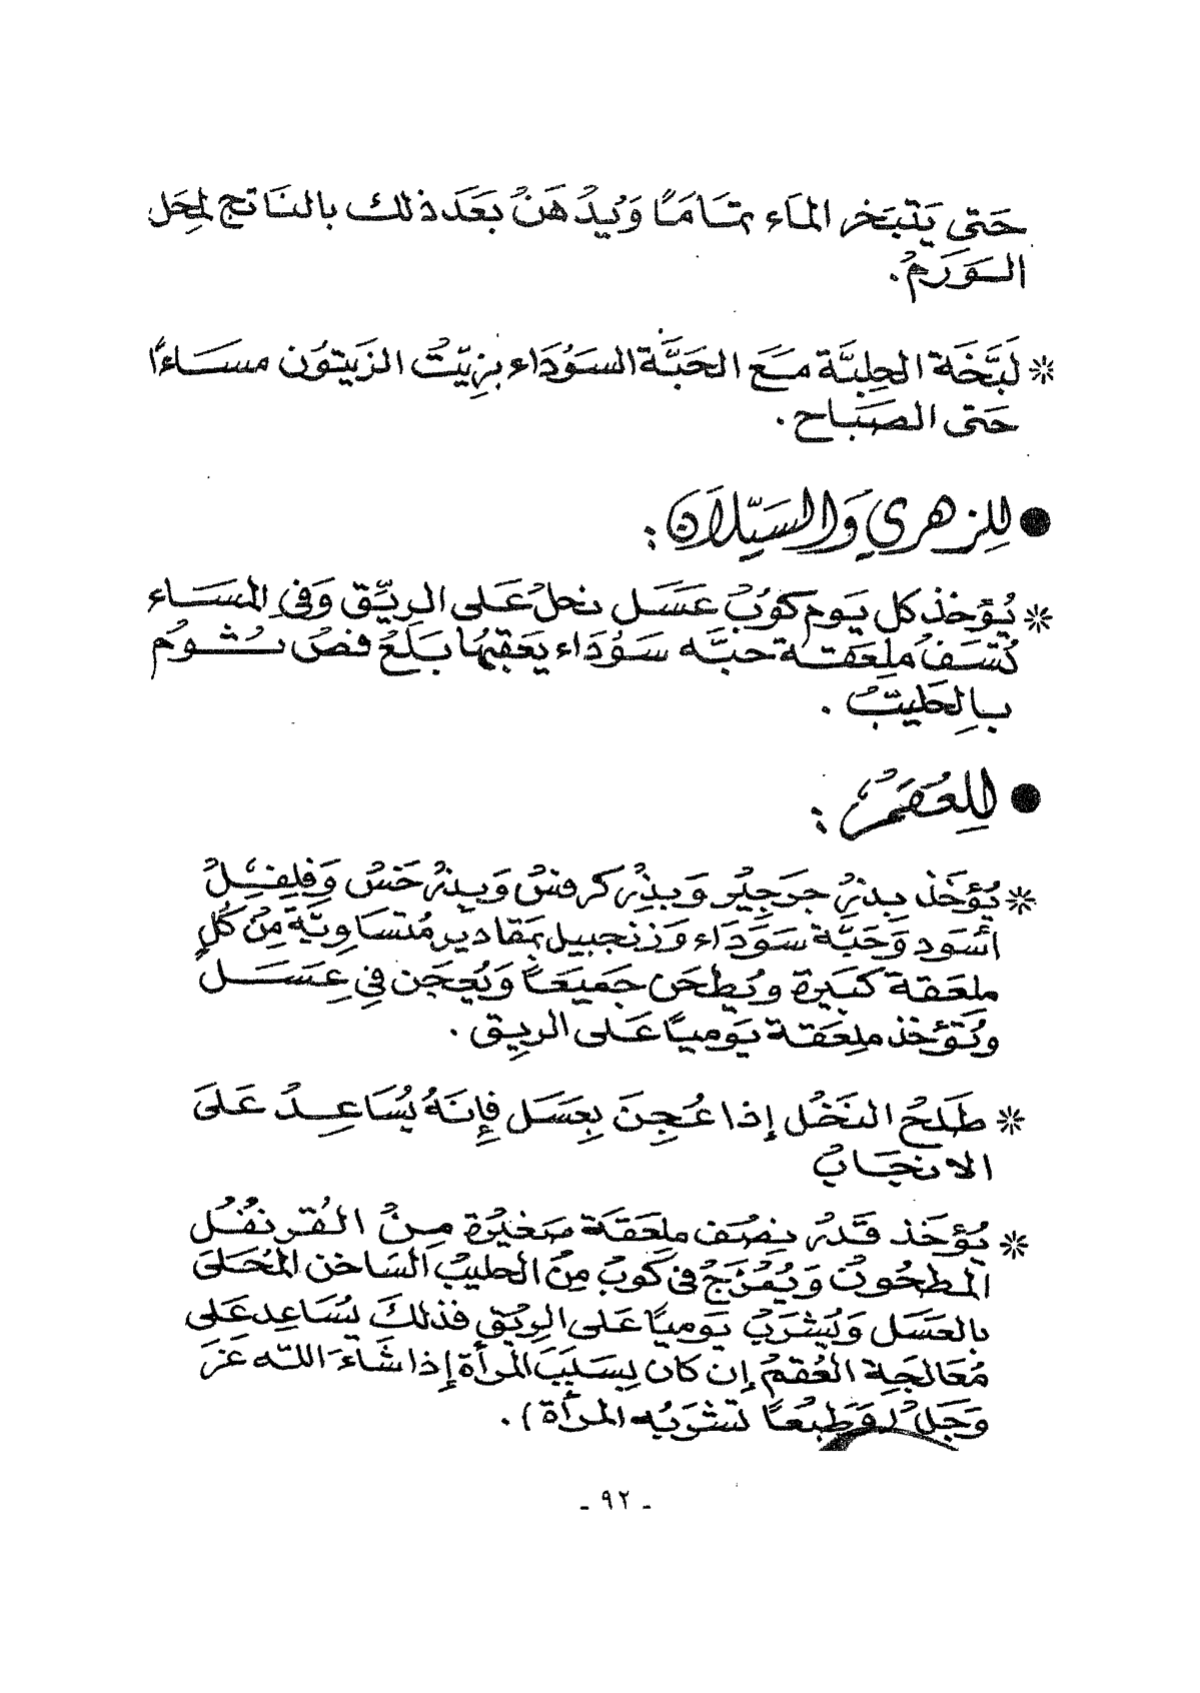 حَتى يَتبَخر الماَء تمَامَاً وَيُدْهَنْ بعَدَ ذلك بالنَاتج لمحَل
الـوَرَمْ.
* لَبَّخَة الحِلبَّة مَعَ الحَبَّة السَوْدَاء بزِيّتْ الزَيتوُن مسَاءاً
حَتى الصَبَاح .
● لِلزهري وَالسَيِّلاَن :
* يُؤخذ كل يَوم كوُبْ عَسَل نحلْ عَلى الرِيِّق وَفي المسَاء
تُسَفْ ملِعَقة حبَّه سَوْدَاء يعَقبهُا بَلعْ فصْ ثـومْ
بالِحَليّبْ .
● لِلعُقمْ :
* يُؤخَذ بِذرْ جَرجِيْر وَبذِرْ كرفسْ وَبِذرْ خَسْ وَفلِفِلْ
أسْوَد وَحَبَّة سَوَدَاء وَزنجبيل بمَقاديرْ مُتسَاوِيَة مِنْ كُلٍ
ملعَقة كبَيرة ويُطحَن جَميَعَاً وَيُعجَن فِي عِسَـل
وتُؤخذ ملِعَقة يَوميَاً عَلى الرِيق .
* طَلَحْ النَخلْ إذا عُجِنَ بِعسَل فإِنَهُ يُسَاعِدْ عَلىَ
الانجَابْ
* يُؤخَذ قَدْر نِصْف ملِعَقَة صَغيْرة مِنْ القُرنفُلْ
المطحُونْ وَيُمْزَجْ في كوُبْ مِنْ الحليبْ السَاخن المُحَلىَ
بالعَسَل وَيُشْرَبْ يَوميَاً عَلى الرِيْق فذلكَ يسَاعِد عَلى
مُعَالجَة العُقمْ إن كان بِسَبَبَ المرأة إذا شَاءَ اللّه عَزَ
وَجَلْ ( وَطبْعاً تشرَبُه المرأة ) .
- ٩٢ -